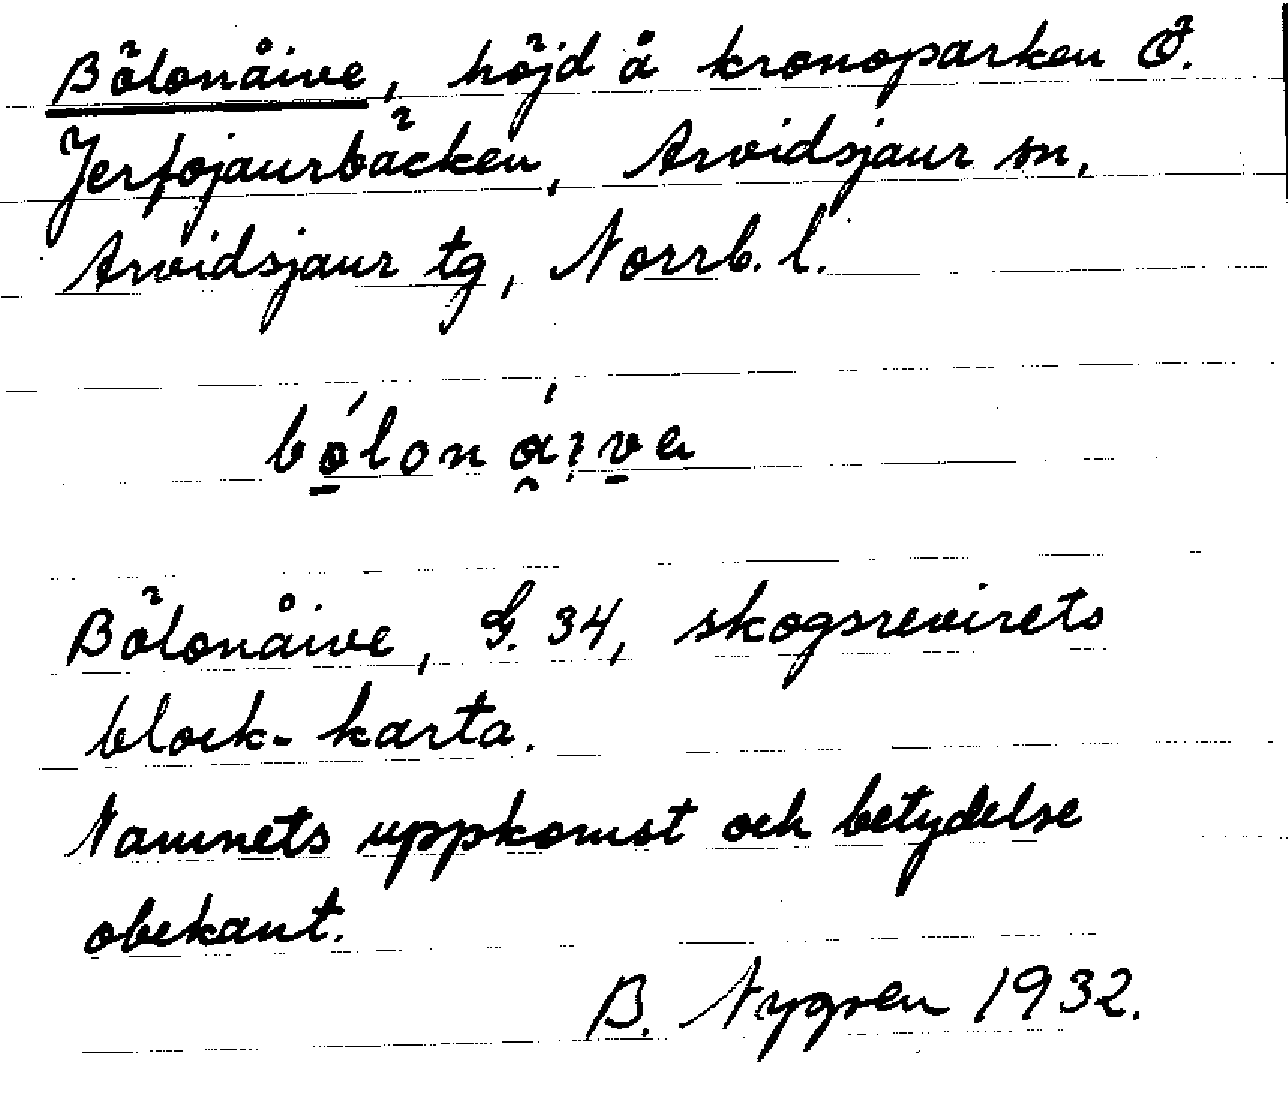 Bölonåive, höjd å kronoparken Ö.
Jerfojaurbäcken, Arvidsjaur sn,
Arvidsjaur tg, Norrb. l.
bó̱loná̮i̯v̱a
Bölonåive, G. 34, skogsrevirets
block-karta.
Namnets uppkomst och betydelse
obekant.
B. Nygren 1932.